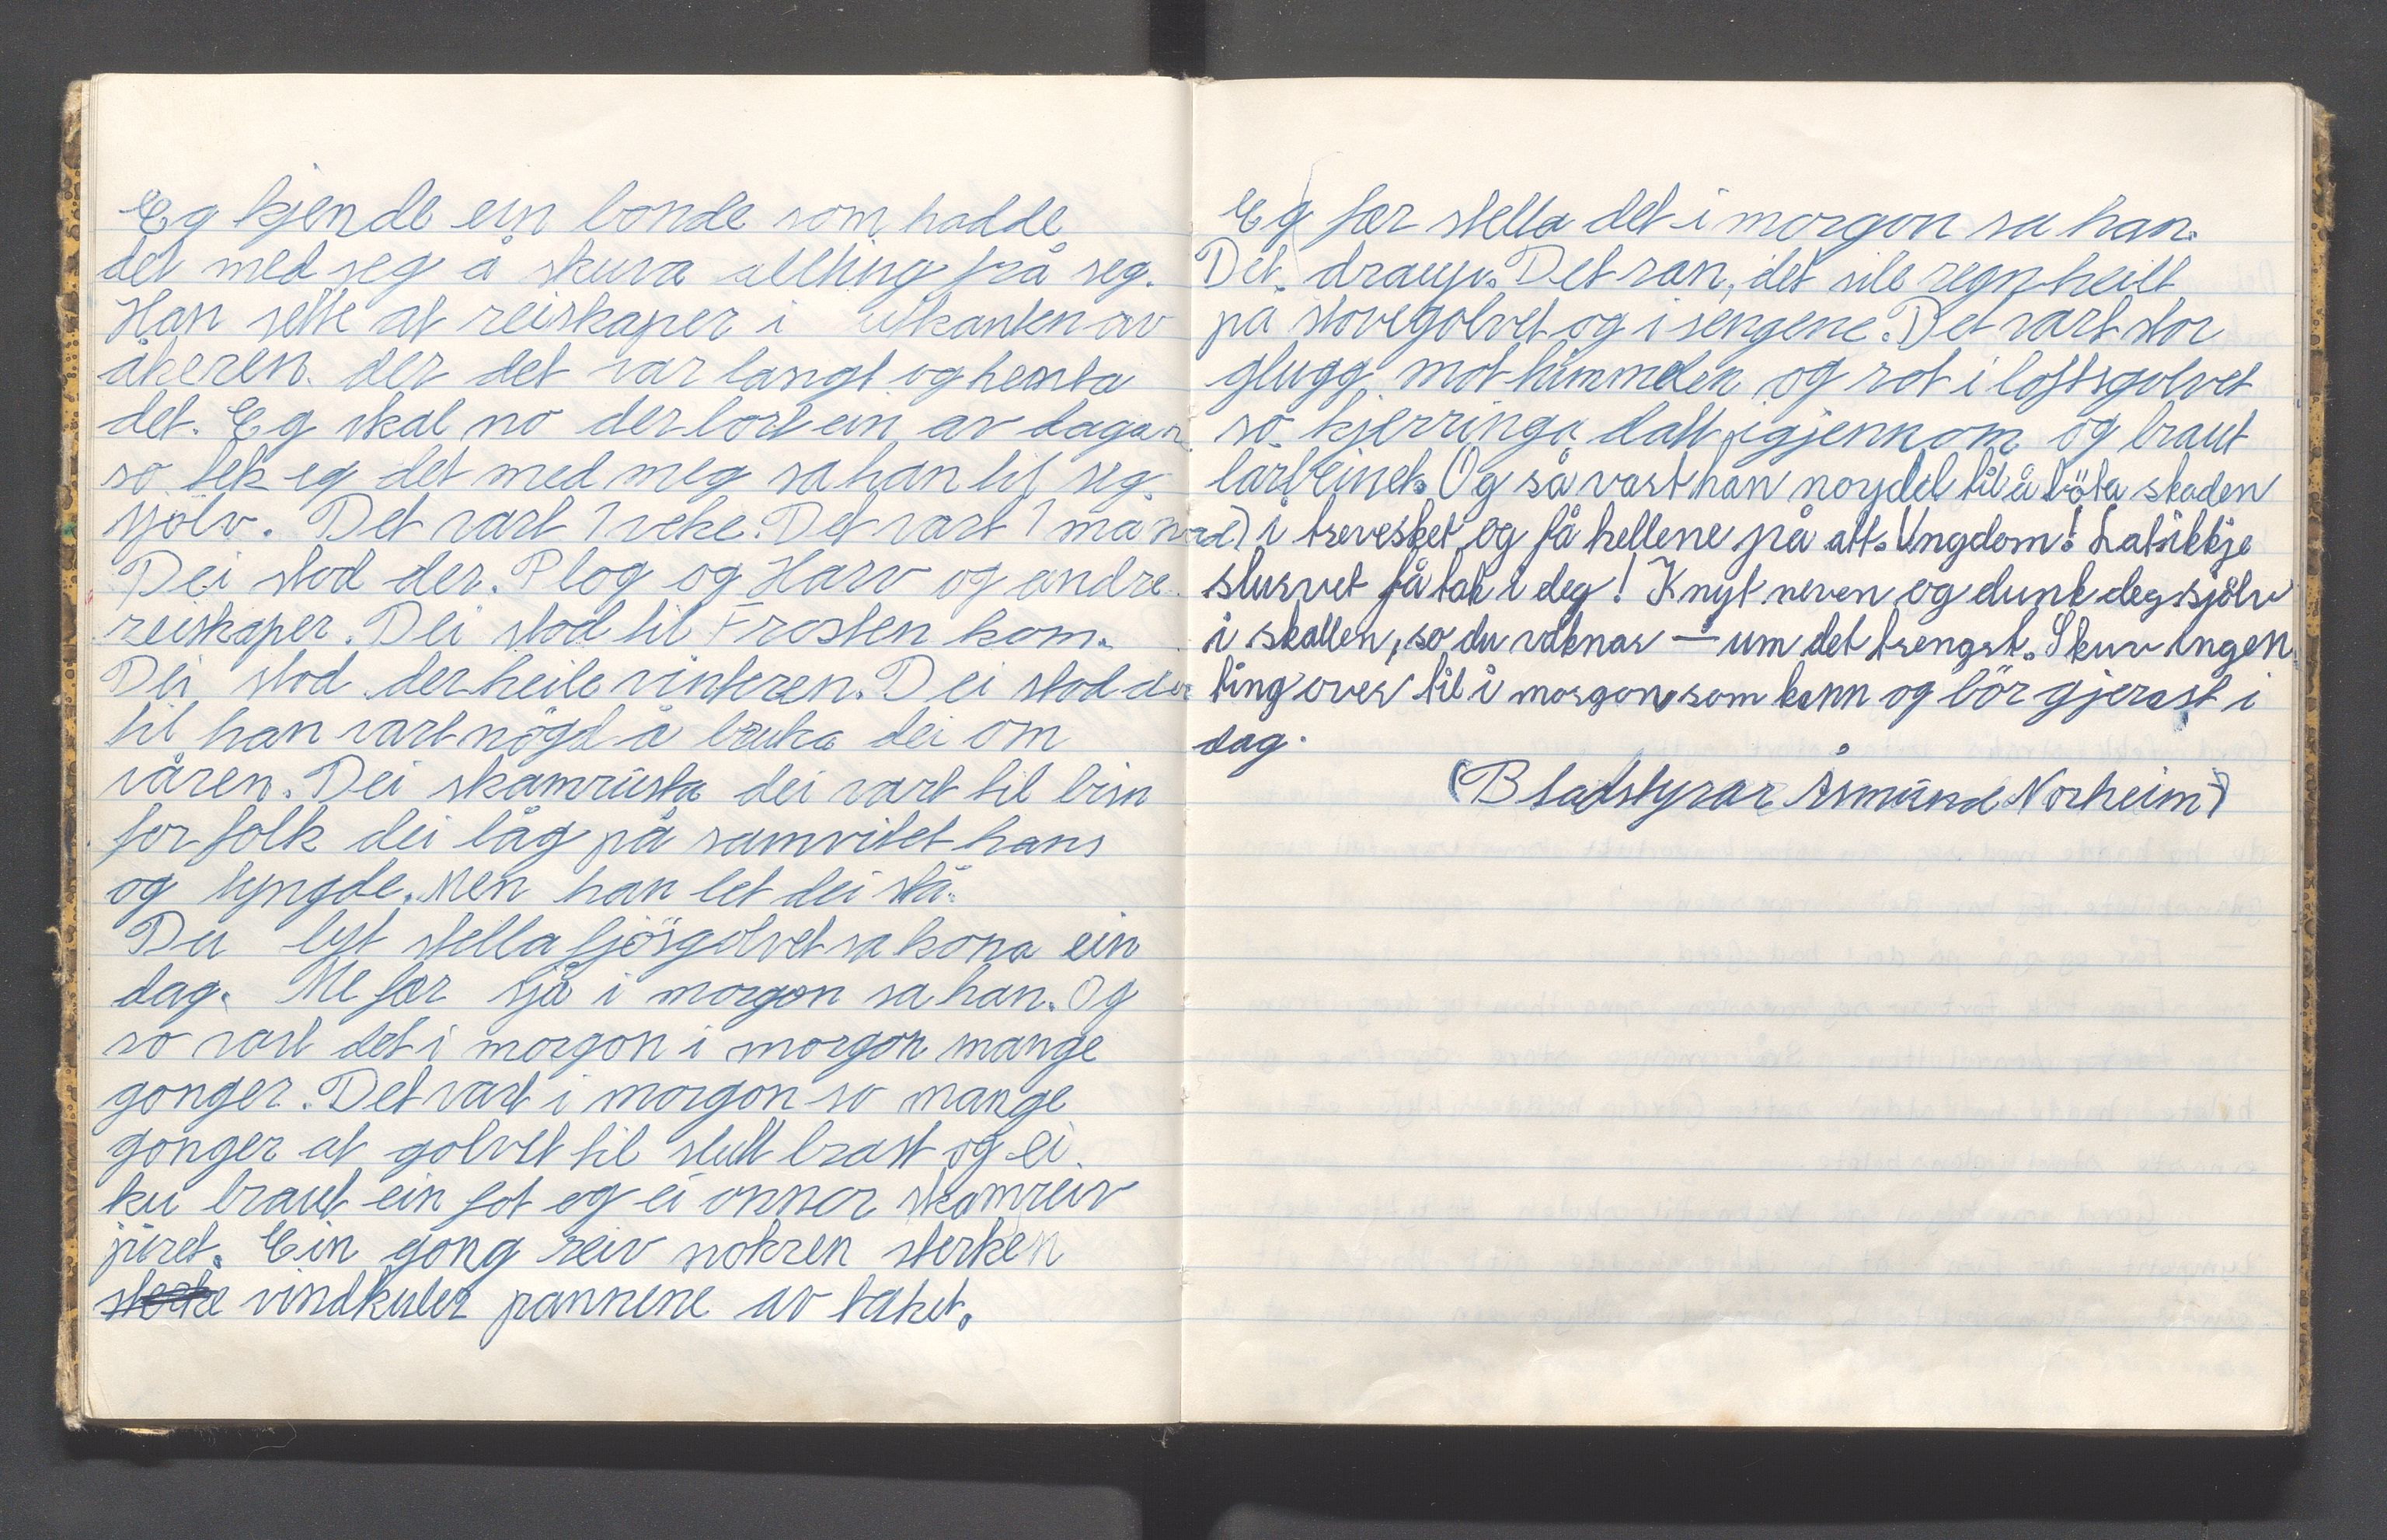 Eg kjende ein bonde som hadde
det med seg å skuva allting frå seg.
Han sette at reiskaper i utkanten av
åkeren. der det var langt og henta
det. Eg skal no der bort ein av dagan
so tek eg det med meg sa han til seg
sjölv. Det vart 1 veke. Det vart 1 månad)
Dei stod der. Plog og Harv og andre
reiskaper. Dei stod til Frosten kom.
Dei stod der heile vinteren. Dei stod der
til han vart nögd å bruka dei om
våren. Dei skamrusta dei vart til bisn
for folk dei låg på samvitet hans
og tyngde. Men han let dei stå.
Du lyt stella fjösgolvet sa kona ein
dag. Me fær sjå i morgon sa han. Og
so vart det i morgon i morgon mange
gonger. Det vart i morgon so mange
gonger at golvet til slutt brast og ei
ku braut ein fot og ei onnor skamreiv
juret. Ein gong reiv nokren sterken
sterke vindkuler pannene av taket.
Eg fær stella det i morgon sa han.
Det draup. Det ran, det sile regn heilt
på stovegolvet og i sengene. Det vart stor
glugg mot himmelen og rot i loftsgolvet
so kjerringa datt igjennom og braut
lårbeinet. Og så vart han noydd til å böta skaden
i treveket og få hellene på att. Ungdom! Lat ikkje
slurvet få tak i deg! Knyt neven og dunk deg sjölv
i skallen, so du vaknar — um det trengst. Skuv ingen
ting over til i morgon, som kann og bör gjerast i
dag.
(Bladstyrar Åsmund Norheim)